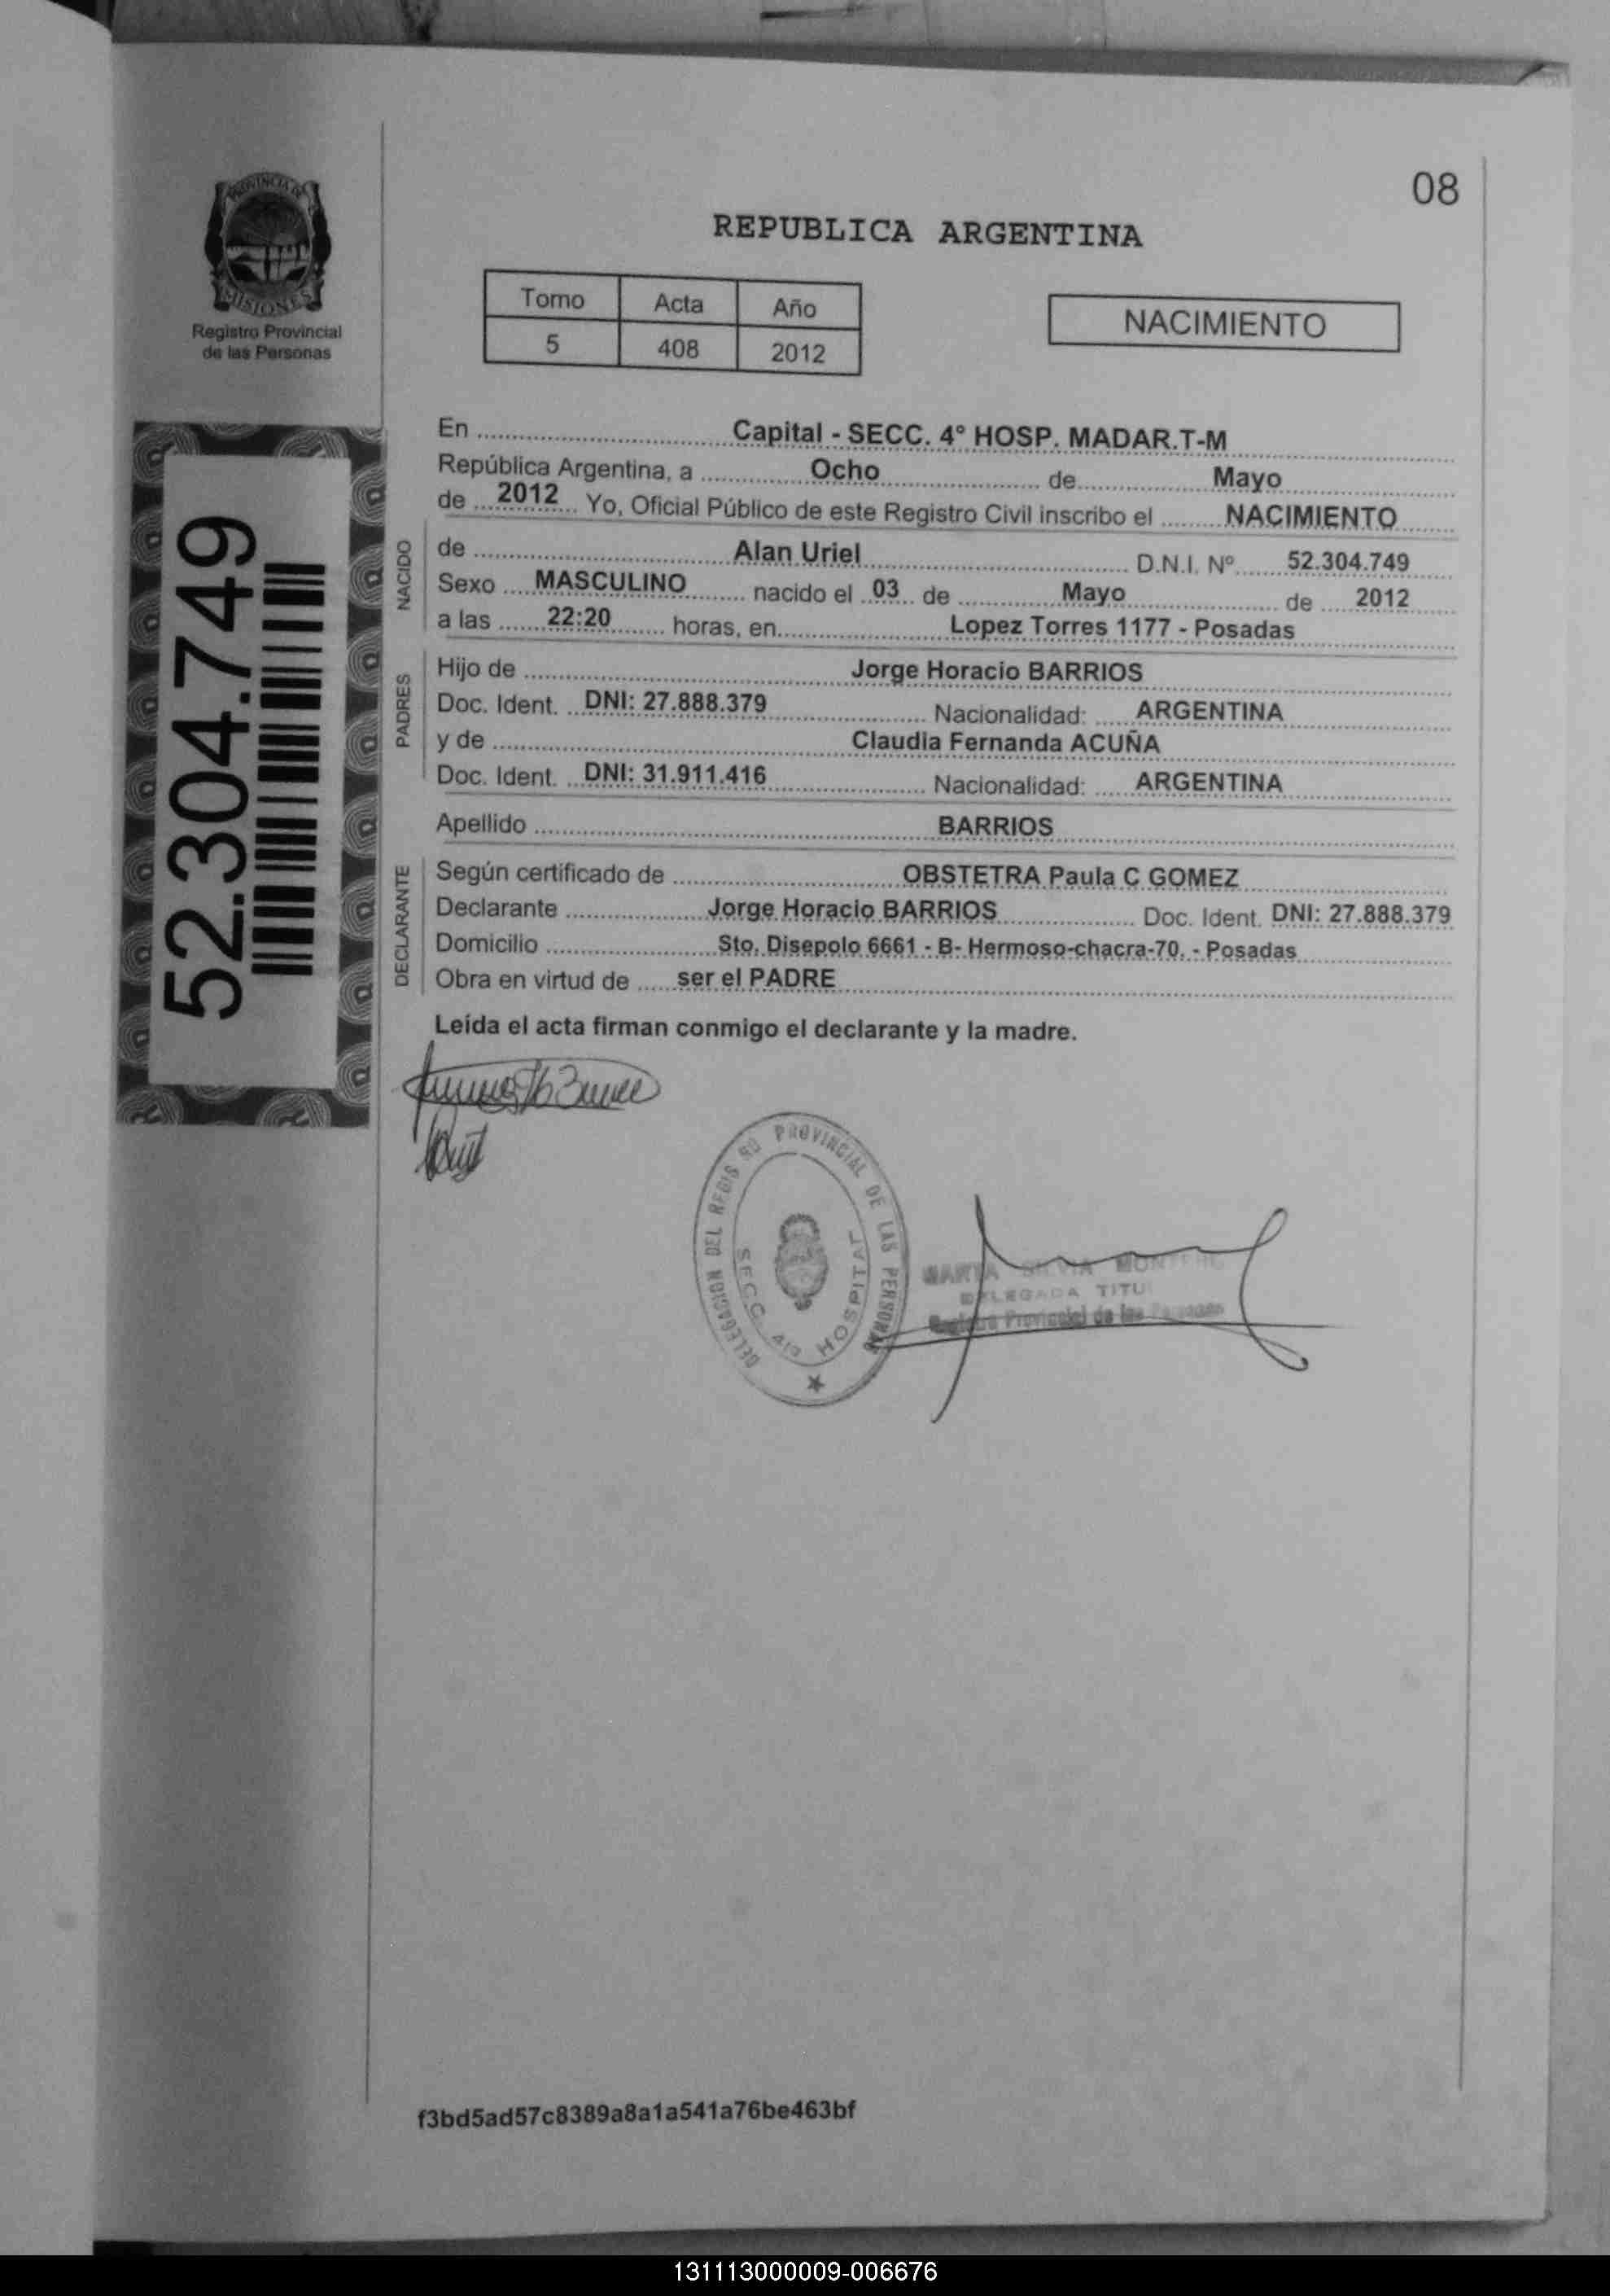 08
REPUBLICA ARGENTINA
PROVINCIA DE
MISIONES
Registro Provincial
de las Personas
Tomo Acta Año
5 408 2012
NACIMIENTO
52.304.749
En Capital - SECC. 4º HOSP. MADAR.T-M
República Argentina, a Ocho de Mayo
de 2012 Yo, Oficial Público de este Registro Civil inscribo el NACIMIENTO
NACIDO
de Alan Uriel D.N.I. Nº 52.304.749
Sexo MASCULINO nacido el 03 de Mayo de 2012
a las 22:20 horas, en Lopez Torres 1177 - Posadas
PADRES
Hijo de Jorge Horacio BARRIOS
Doc. Ident. DNI: 27.888.379 Nacionalidad: ARGENTINA
y de Claudia Fernanda ACUÑA
Doc. Ident. DNI: 31.911.416 Nacionalidad: ARGENTINA
Apellido BARRIOS
DECLARANTE
Según certificado de OBSTETRA Paula C GOMEZ
Declarante Jorge Horacio BARRIOS Doc. Ident. DNI: 27.888.379
Domicilio Sto. Disepolo 6661 - B- Hermoso-chacra-70. - Posadas
Obra en virtud de ser el PADRE
Leída el acta firman conmigo el declarante y la madre.
DELEGACION DEL REGIS RO PROVINCIAL DE LAS PERSONAS
SECC. 4ta HOSPITAL
MARTA SILVIA
DELEGADA
Registro Provincial de las Personas
f3bd5ad57c8389a8a1a541a76be463bf
131113000009-006676